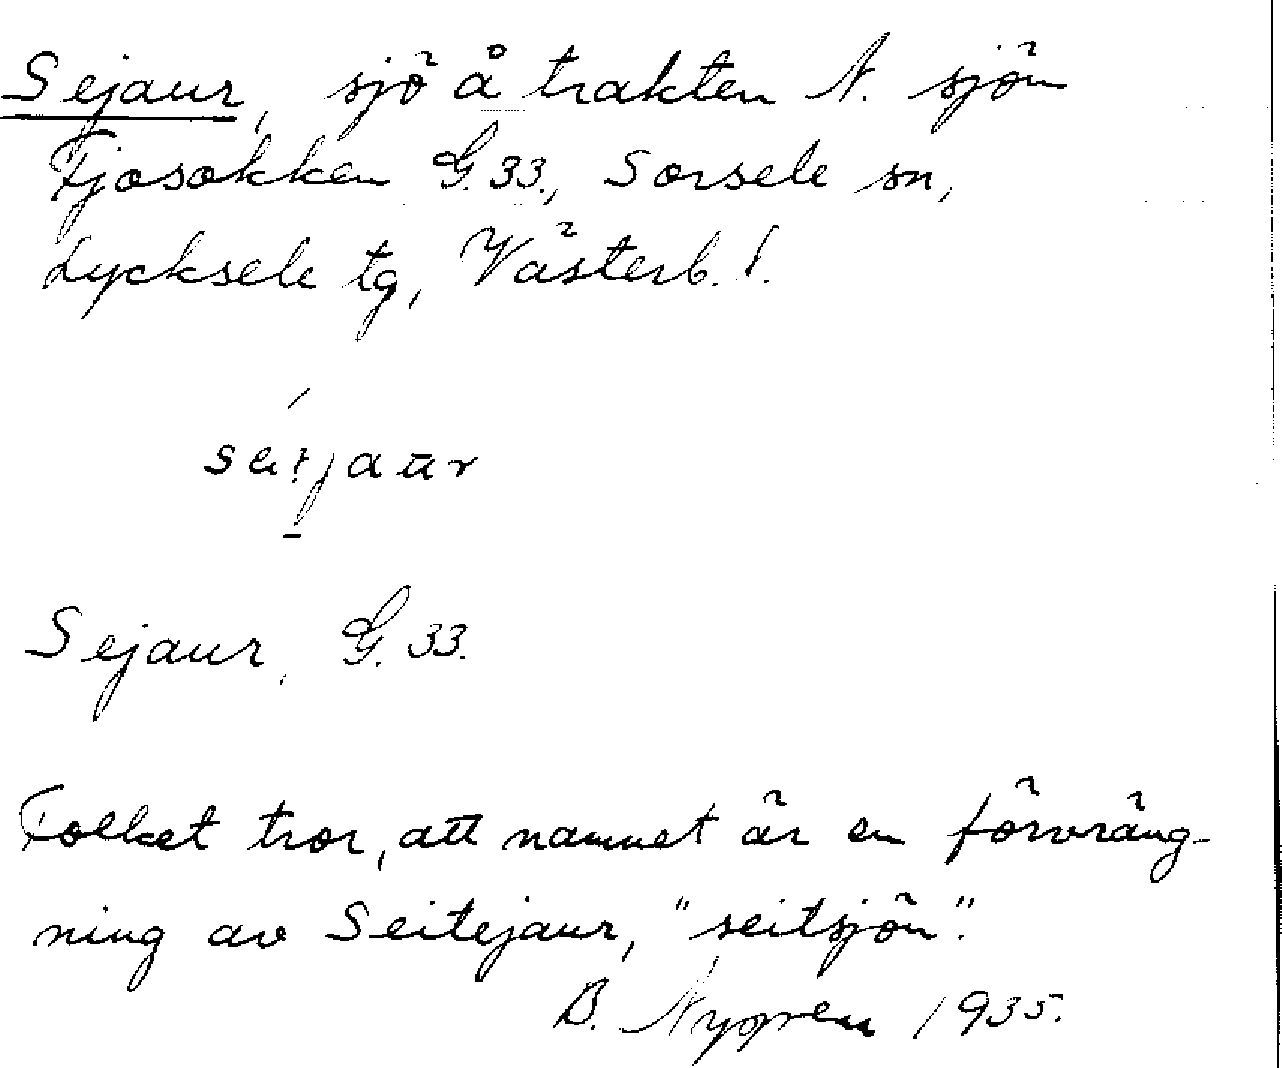 Sejaur, sjö å trakten N. sjön
Fjosokken G.33., Sorsele sn,
Lycksele tg, Västerb. l.
Sejaur, G. 33.
Folket tror, att namnet är en förvräng-
ning av Seitejaur, "seitsjön".
B. Nygren 1935.